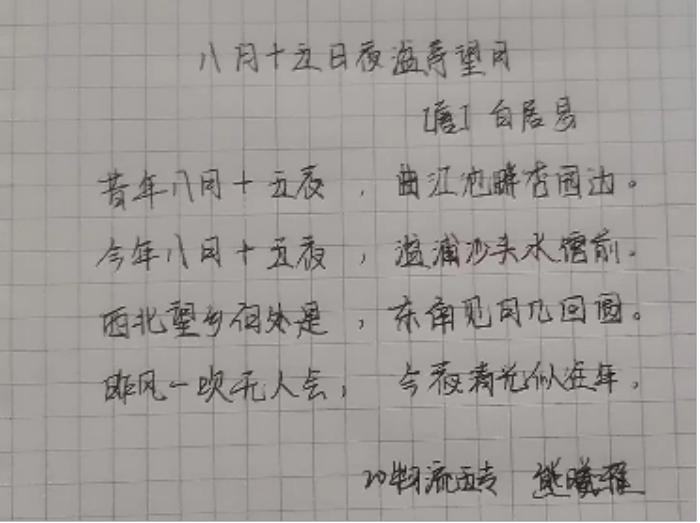 八月十五日夜湓亭望月
[唐] 白居易
昔年八月十五夜，曲江池畔杏园边。
今年八月十五夜，湓浦沙头水馆前。
西北望乡何处是，东南见月几回圆。
昨风一吹无人会，今夜清光似往年。
20物流五专 熊曦雅